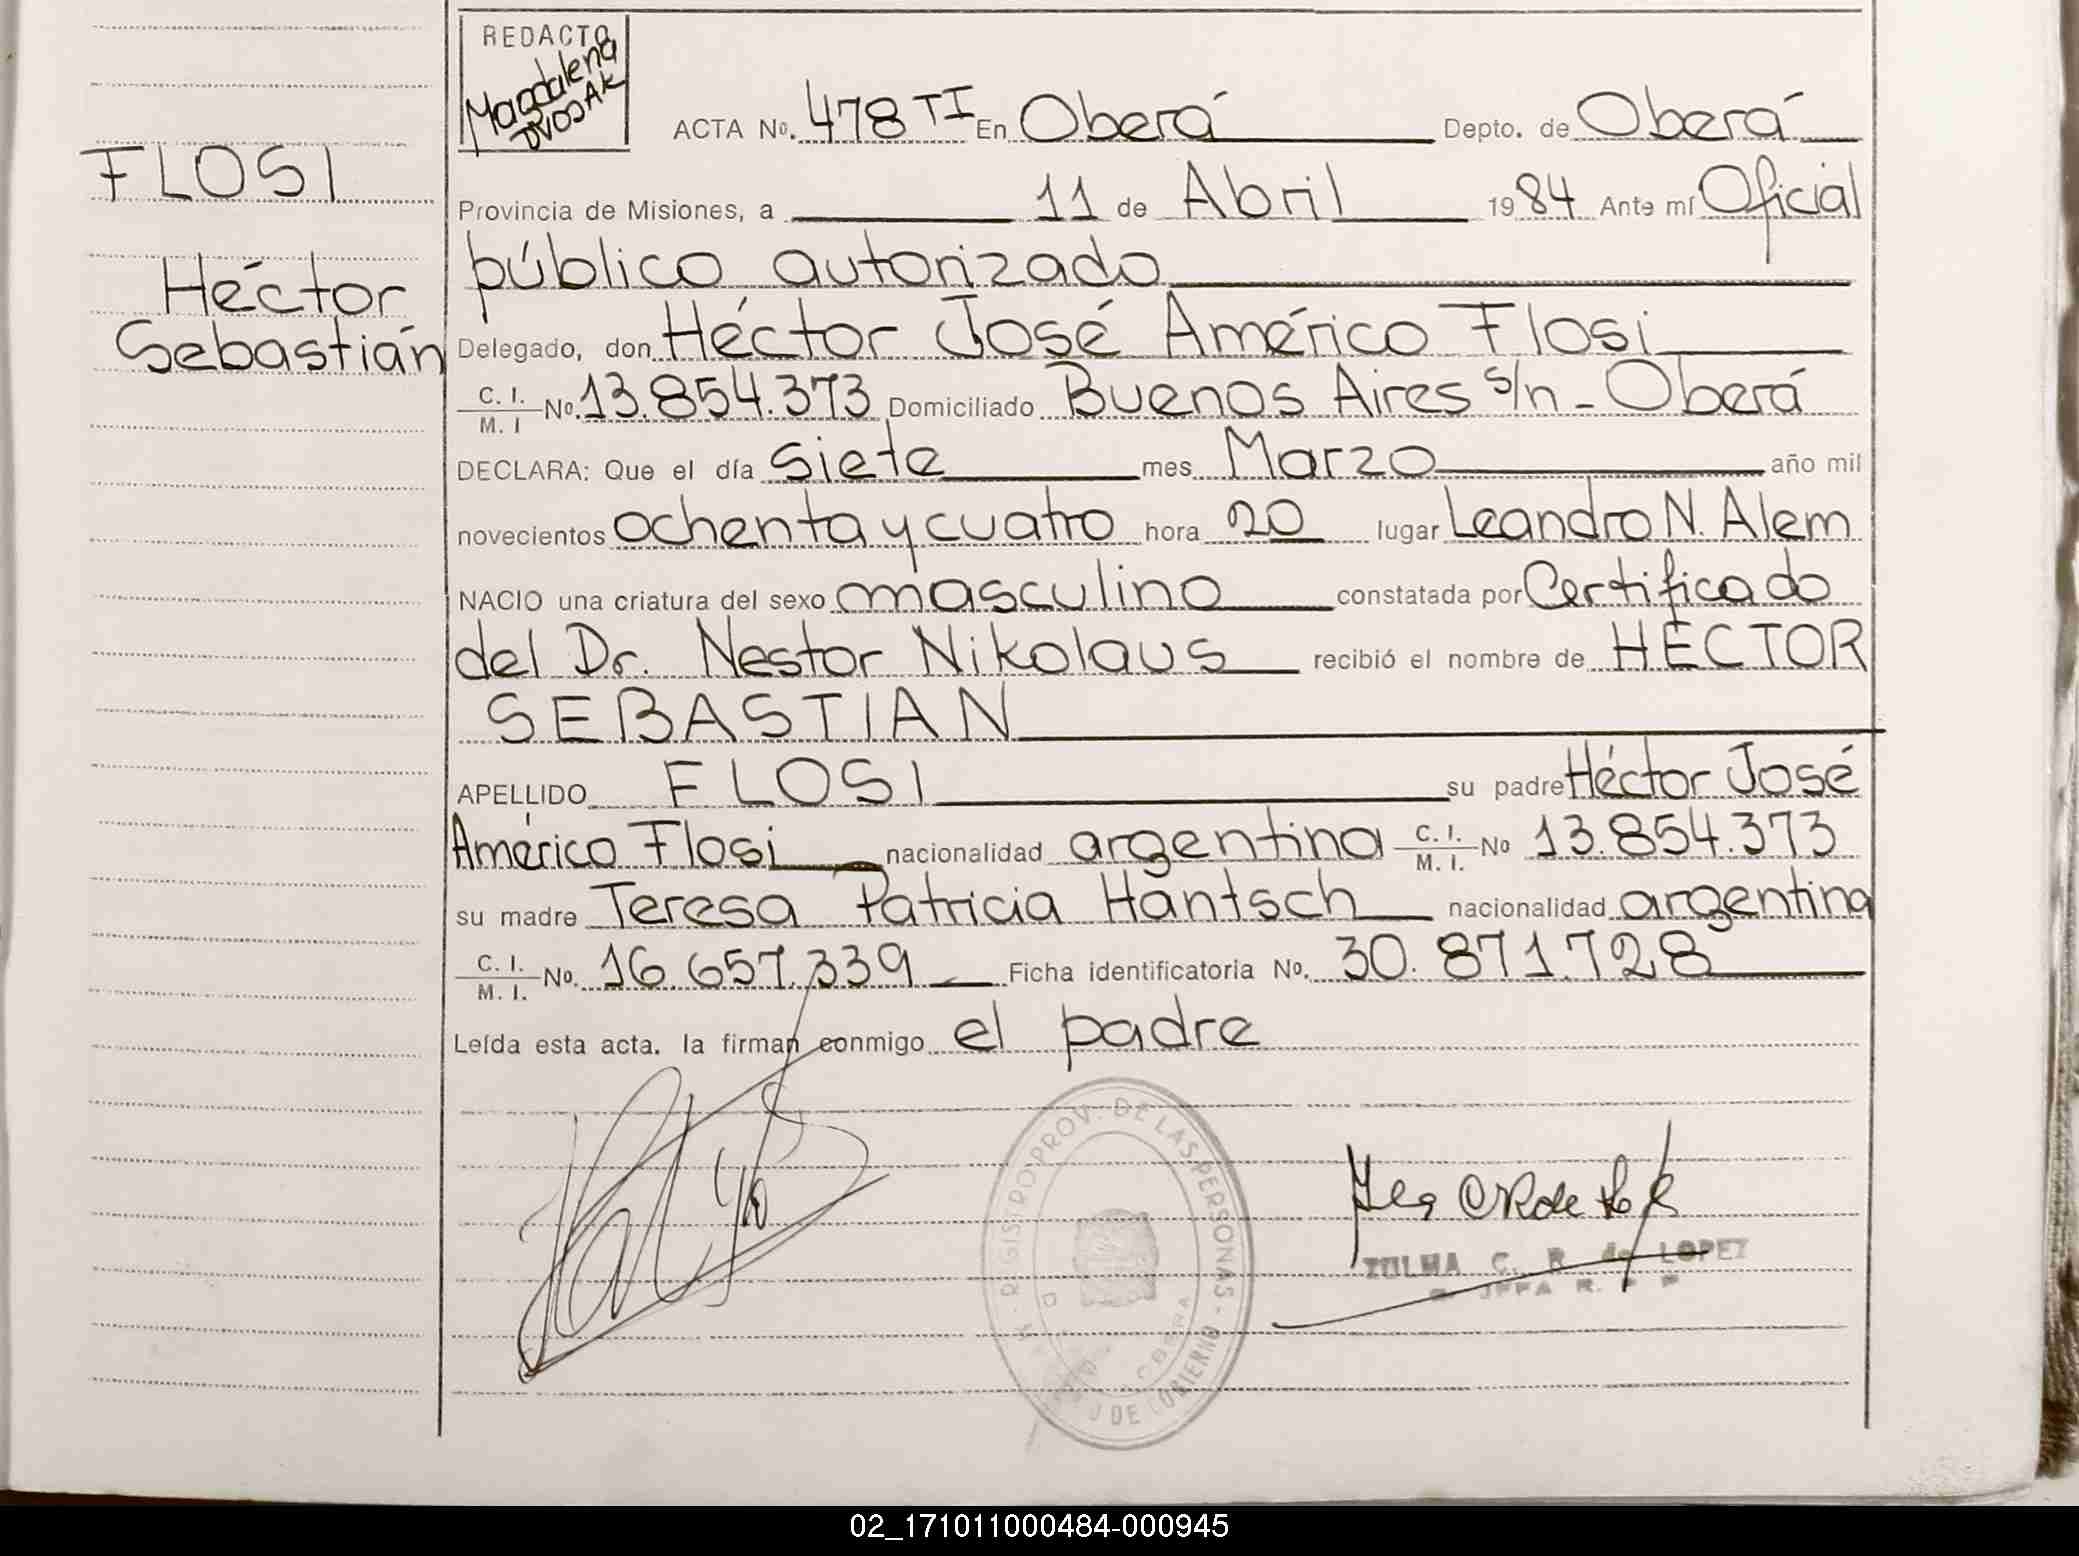 REDACTO
Magdalena
DVOSAK
ACTA Nº. 478 TI En Oberá Depto. de Oberá
FLOSI
Provincia de Misiones, a 11 de Abril 1984 Ante mí Oficial
público autorizado
Héctor
Sebastián
Delegado, don Héctor José Américo Flosi
C. I.
M. I Nº. 13.854.373 Domiciliado Buenos Aires s/n - Oberá
DECLARA: Que el día siete mes Marzo año mil
novecientos ochenta y cuatro hora 20 lugar Leandro N. Alem
NACIO una criatura del sexo masculino constatada por Certificado
del Dr. Nestor Nikolaus recibió el nombre de HÉCTOR
SEBASTIAN
APELLIDO FLOSI su padre Héctor José
Américo Flosi nacionalidad argentina C. I. M. I. Nº 13.854.373
su madre Teresa Patricia Hantsch nacionalidad argentina
C. I.
M. I. Nº. 16.657.339 Ficha identificatoria Nº. 30.871.728
Leída esta acta. la firman conmigo el padre
REGISTRO PROV. DE LAS PERSONAS
OBERA
DE GOBIERNO
ZULMA C. R. de LOPEZ
JEFA R.
02_171011000484-000945